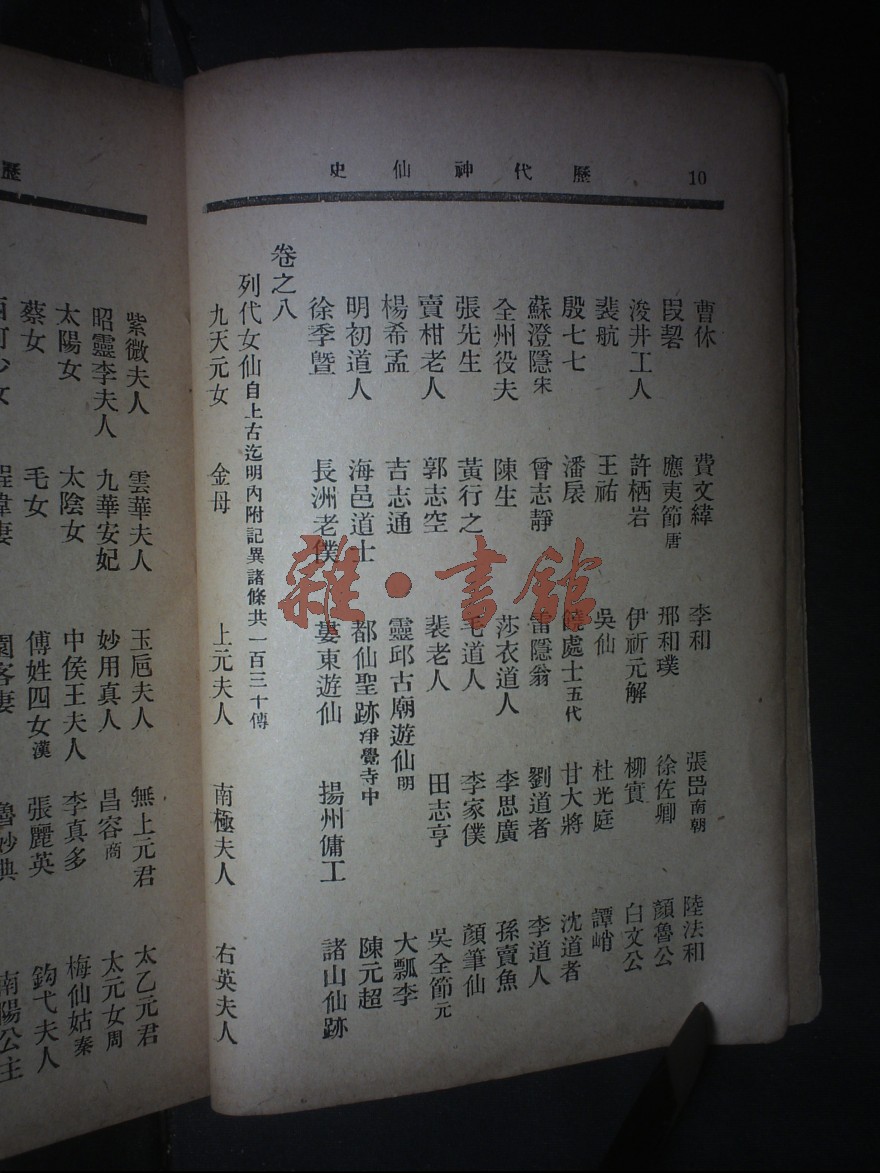 歷代神仙史
10
曹休 費文緯 李和 張岊南朝 陸法和
應夷節唐 邢和璞 徐佐卿 顏魯公
浚井工人 許栖岩 伊祈元解 柳實 白文公
裴航 王祐 吳仙 杜光庭 譚峭
殷七七 潘扆 饒處士五代 甘大將 沈道者
蘇澄隱宋 曾志靜 雷隱翁 劉道者 李道人
全州役夫 陳生 莎衣道人 李思廣 孫賣魚
張先生 黃行之 毛道人 李家僕 顏筆仙
賣柑老人 郭志空 裴老人 田志亨 吳全節元
楊希孟 吉志通 靈邱古廟遊仙明 大瓢李
明初道人 海邑道士 都仙聖跡淨覺寺中 陳元超
徐季曁 長洲老僕 婁東遊仙 揚州傭工 諸山仙跡
卷之八
列代女仙自上古迄明內附記異諸條共一百三十傳
九天元女 金母 上元夫人 南極夫人 右英夫人
歷
紫微夫人 雲華夫人 玉巵夫人 無上元君 太乙元君
昭靈李夫人 九華安妃 妙用真人 昌容商 太元女周
太陽女 太陰女 中侯王夫人 李真多 梅仙姑秦
蔡女 毛女 傅姓四女漢 張麗英 鈎弋夫人
西河少女 程偉妻 園客妻 魯妙典 南陽公主
雜·書館